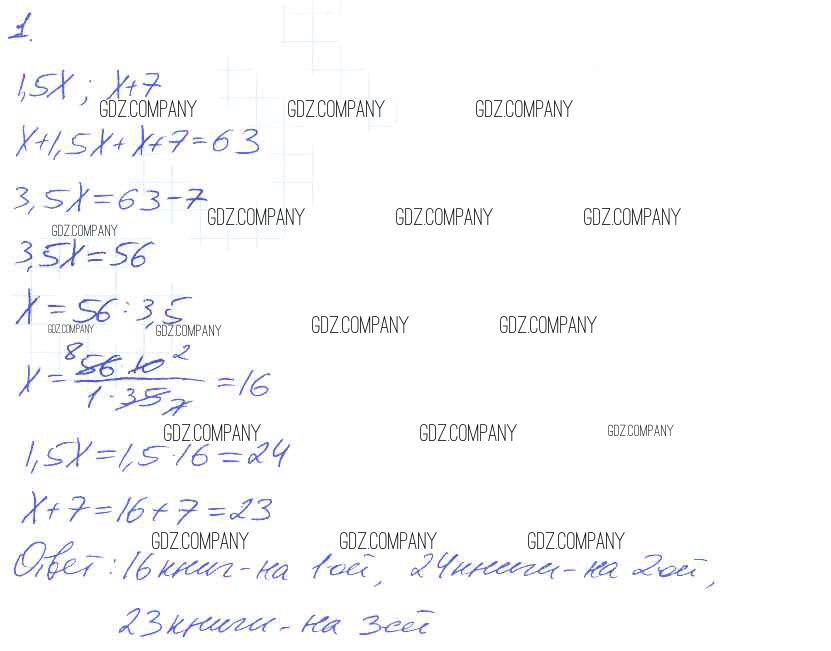 1.
1,5X ; X+7
GDZ.COMPANY GDZ.COMPANY GDZ.COMPANY
X+1,5X+X+7=63
3,5X=63-7
GDZ.COMPANY GDZ.COMPANY GDZ.COMPANY
GDZ.COMPANY
3,5X=56
X=56:3,5
GDZ.COMPANY GDZ.COMPANY GDZ.COMPANY GDZ.COMPANY
8 56·10 2
X= =16
1·35 7
GDZ.COMPANY GDZ.COMPANY GDZ.COMPANY
1,5X=1,5·16=24
X+7=16+7=23
GDZ.COMPANY GDZ.COMPANY GDZ.COMPANY
Ответ: 16 книг-на 1ой, 24 книги-на 2ой,
23 книги-на 3ей